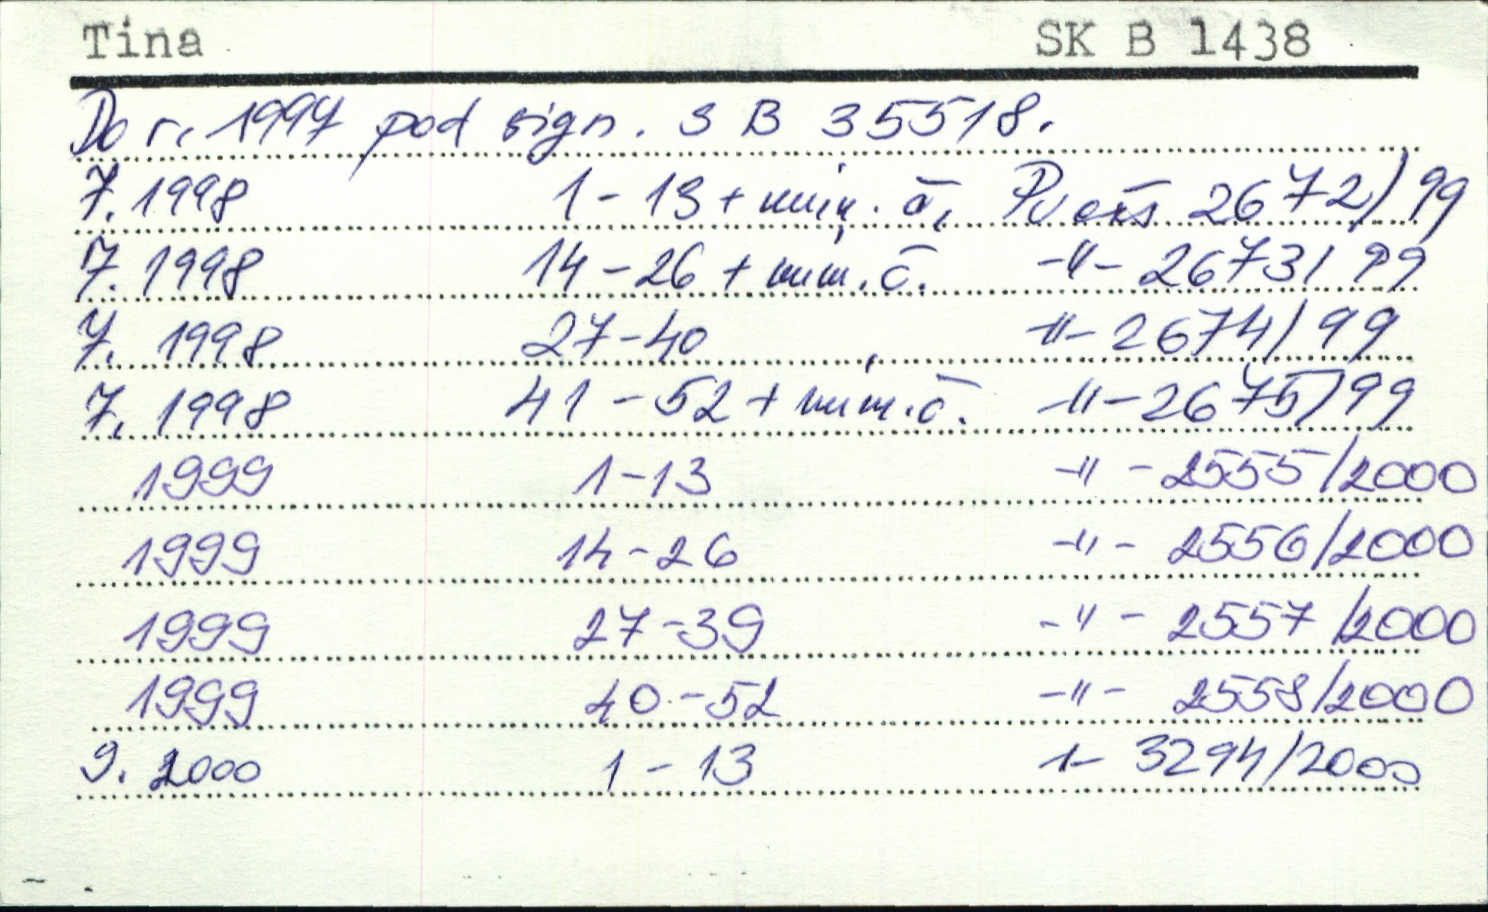 Tina SK B 1438
Do r. 1997 pod sign. S B 35518.
7. 1998 1-13 + mim. č. Pv 2672/99
7. 1998 14-26 + mim. č. -"- 2673/99
7. 1998 27-40 -"- 2674/99
7. 1998 41-52 + mim. č. -"- 2675/99
1999 1-13 -"- 2555/2000
1999 14-26 -"- 2556/2000
1999 27-39 -"- 2557/2000
1999 40-52 -"- 2558/2000
9. 2000 1-13 -"- 3294/2000